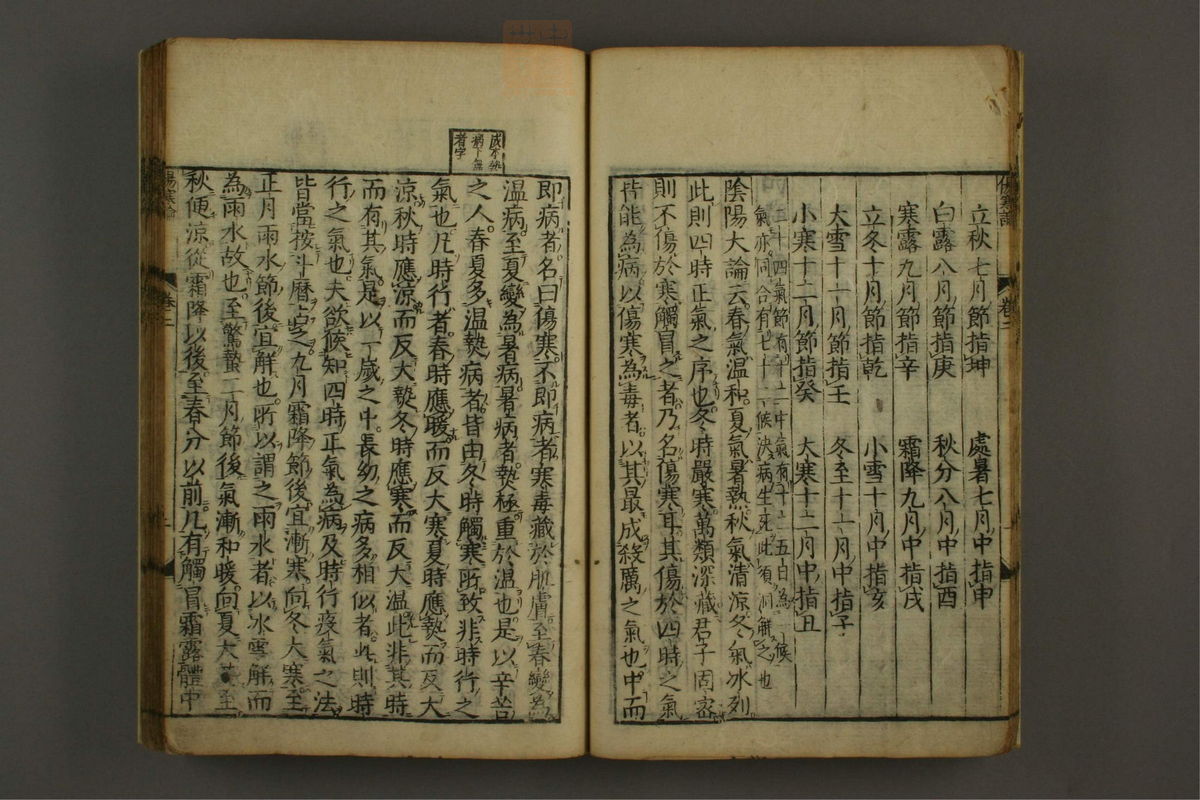 立秋七月節指坤 處暑七月中指申
白露八月節指庚 秋分八月中指酉
寒露九月節指辛 霜降九月中指戌
立冬十月節指乾 小雪十月中指亥
大雪十一月節指壬 冬至十一月中指子
小寒十二月節指癸 大寒十二月中指丑
二十四氣節有十二中氣有十二五日為一候
氣亦同合有七十二候決病生死此須洞解之也
陰陽大論云春氣溫和夏氣暑熱秋氣清涼冬氣冰列
此則四時正氣之序也冬時嚴寒萬類深藏君子固密
則不傷於寒觸冒之者乃名傷寒耳其傷於四時之氣
皆能為病以傷寒為毒者以其最成殺厲之氣也中而
傷寒論 卷二
成本熱
病下無
者字
即病者名曰傷寒不即病者寒毒藏於肌膚至春變為
溫病至夏變為暑病暑病者熱極重於溫也是以辛苦
之人春夏多溫熱病者皆由冬時觸寒所致非時行之
氣也凡時行者春時應暖而反大寒夏時應熱而反大
涼秋時應涼而反大熱冬時應寒而反大溫此非其時
而有其氣是以一歲之中長幼之病多相似者此則時
行之氣也夫欲候知四時正氣為病及時行疫氣之法
皆當按斗曆占之九月霜降節後宜漸寒向冬大寒至
正月雨水節後宜解也所以謂之雨水者以冰雪解而
為雨水故也至驚蟄二月節後氣漸和暖向夏大至
秋便涼從霜降以後至春分以前凡有觸冒霜露體中
傷寒論 卷二